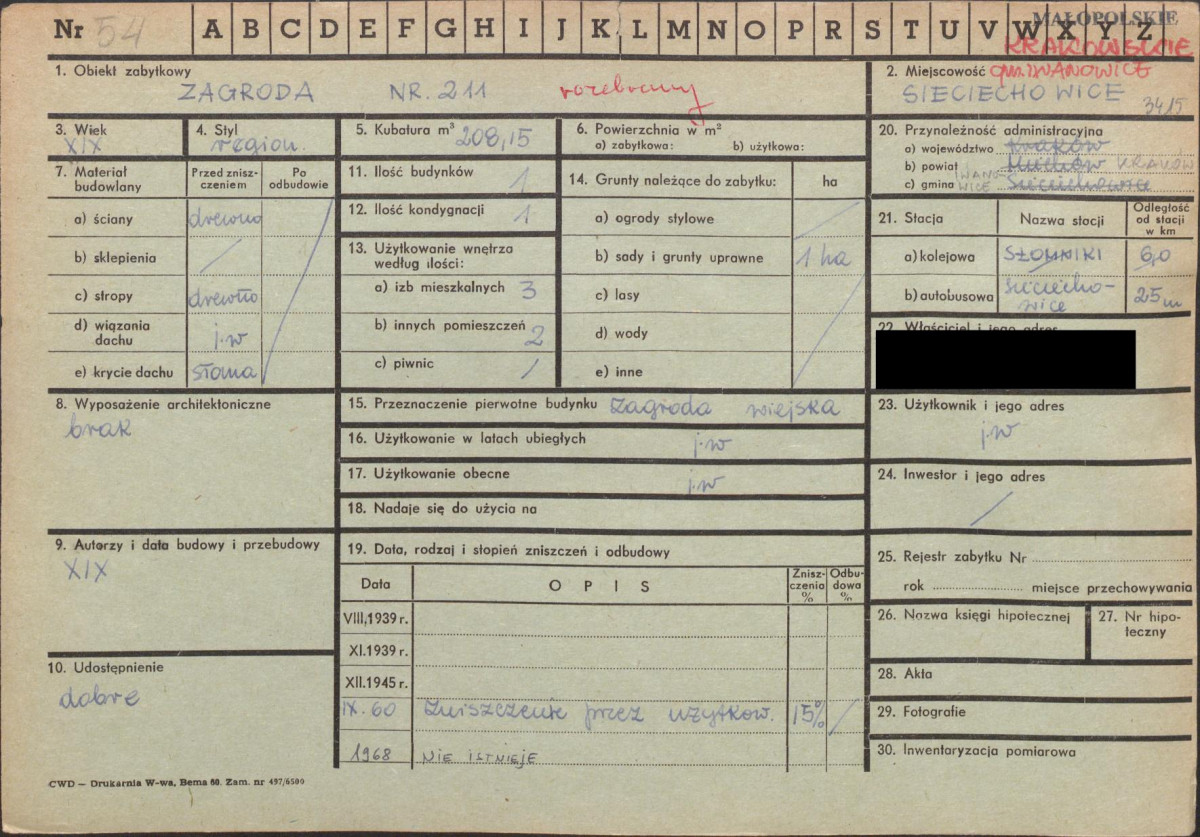 Nr 54 A B C D E F G H I J K L M N O P R S T U V W X Y Z
MAŁOPOLSKIE
KRAKOWSKIE
1. Obiekt zabytkowy
ZAGRODA NR. 211 rozebrany
2. Miejscowość gm. IWANOWICE
SIECIECHOWICE 3415
3. Wiek
XIX
4. Styl
region.
5. Kubatura m³ 208,15
6. Powierzchnia w m²
a) zabytkowa: b) użytkowa:
7. Materiał budowlany
Przed zniszczeniem
Po odbudowie
a) ściany drewno
b) sklepienia /
c) stropy drewno
d) wiązania dachu j.w
e) krycie dachu słoma
8. Wyposażenie architektoniczne
brak
9. Autorzy i data budowy i przebudowy
XIX
10. Udostępnienie
dobre
11. Ilość budynków 1
12. Ilość kondygnacji 1
13. Użytkowanie wnętrza
według ilości:
a) izb mieszkalnych 3
b) innych pomieszczeń 2
c) piwnic /
14. Grunty należące do zabytku: ha
a) ogrody stylowe /
b) sady i grunty uprawne 1 ha
c) lasy
d) wody
e) inne
15. Przeznaczenie pierwotne budynku Zagroda wiejska
16. Użytkowanie w latach ubiegłych j.w
17. Użytkowanie obecne j.w
18. Nadaje się do użycia na
19. Data, rodzaj i stopień zniszczeń i odbudowy
Data OPIS Zniszczenia % Odbudowa %
VIII,1939 r.
XI.1939 r.
XII.1945 r.
IX.60 Zniszczenie przez użytkow. 15% /
1968 NIE ISTNIEJE
20. Przynależność administracyjna
a) województwo Kraków
b) powiat Miechów KRAKÓW
c) gmina IWANOWICE Sieciechowice
21. Stacja Nazwa stacji Odległość od stacji w km
a) kolejowa SŁOMNIKI 6,0
b) autobusowa Sieciechowice 25 m
22. Właściciel i jego adres
23. Użytkownik i jego adres
j.w
24. Inwestor i jego adres
/
25. Rejestr zabytku Nr
rok miejsce przechowywania
26. Nazwa księgi hipotecznej
27. Nr hipoteczny
28. Akta
29. Fotografie
30. Inwentaryzacja pomiarowa
CWD — Drukarnia W-wa, Bema 60. Zam. nr 497/6500